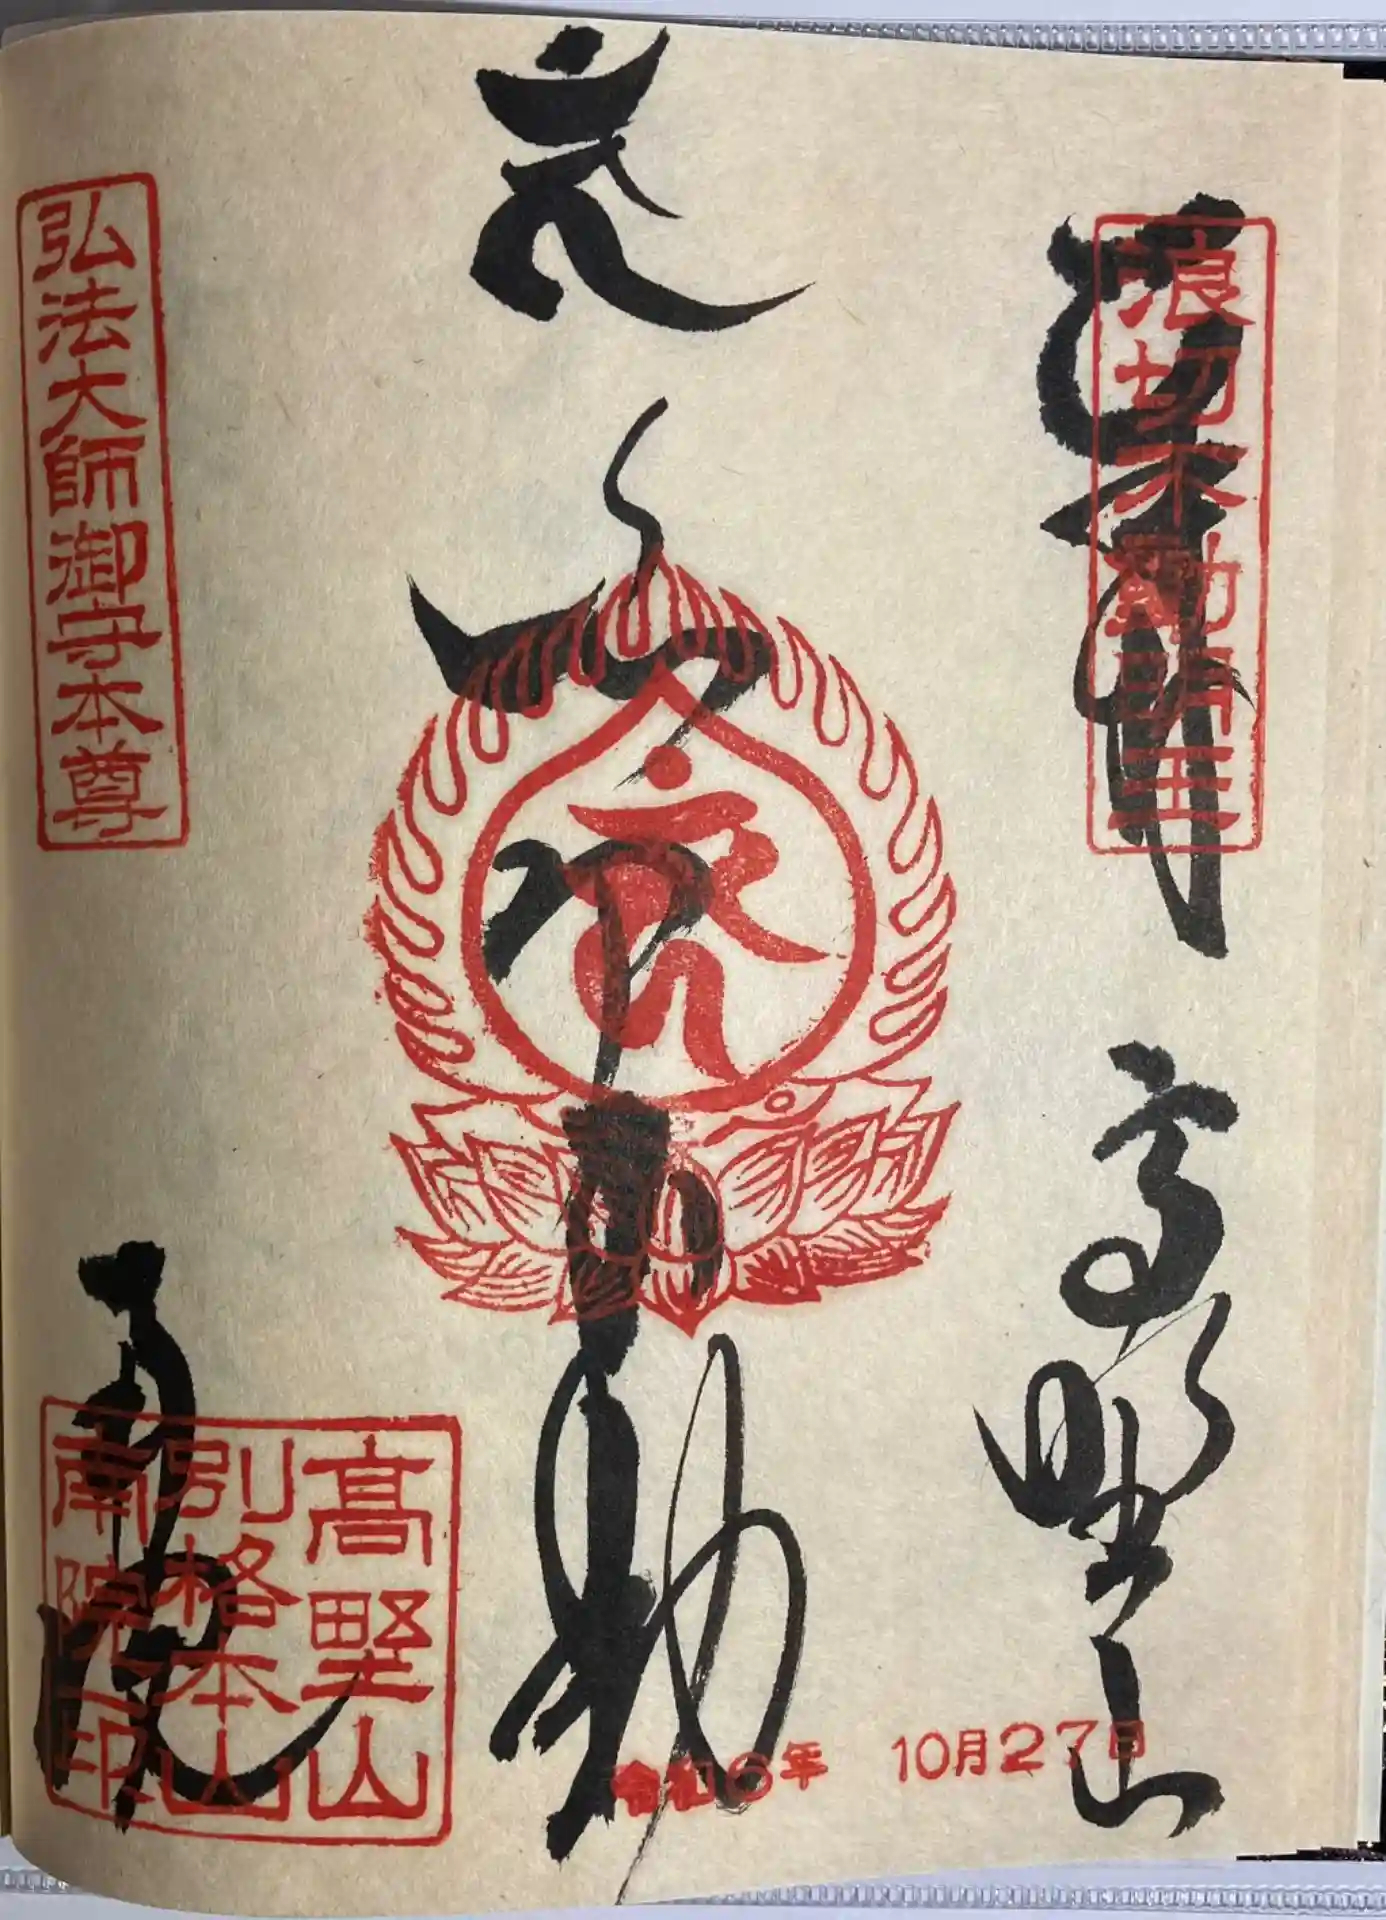 奉拝
高野山
浪切不動明王
不動
弘法大師御守本尊
南院
高野山
別格本山
南院印
令和6年 10月27日